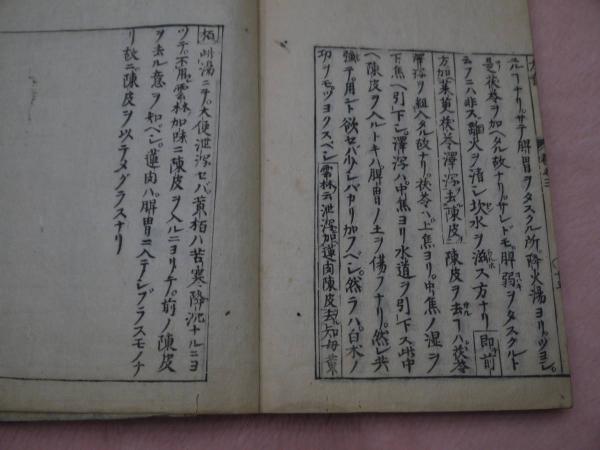 ルヿナリ。サテ脾胃ヲタスクル所降火湯ヨリ。ツヨシ。
是茯苓ヲ加ヘタル故ナリ。サレドモ。脾弱ヲタスクルト
云フニハ非ズ。離火ヲ清シ坎水ヲ滋ス方ナリ 即前
方加茱萸茯苓澤瀉去陳皮 陳皮ヲ去フハ。茯苓
澤瀉ヲ組入タル故ナリ。茯苓ハ。上焦ヨリ。中焦ノ湿ヲ
下焦ヘ引下シ。澤瀉ハ。中焦ヨリ水道ヲ引下ス。此中
ヘ陳皮ヲ入ルトキハ。脾胃ノ土ヲ傷フナリ。然レ共
強テ。用ント欲セバ少シバカリ加フベシ。然ラハ。白朮ノ
功ヲモツヨクスベシ 雲林云泄瀉加蓮肉陳皮去知母黄
栢 此湯ニテ。大便泄瀉セバ黄栢ハ苦寒降沈ナルニヨ
ツテ。不用。雲林加味ニ陳皮ヲ入ルニヨリテ。前ノ陳皮
ヲ去ル意ヲ知ベシ。蓮肉ハ。脾胃ニ入テシブラスモノナ
リ故ニ陳皮ヲ以テメグラスナリ